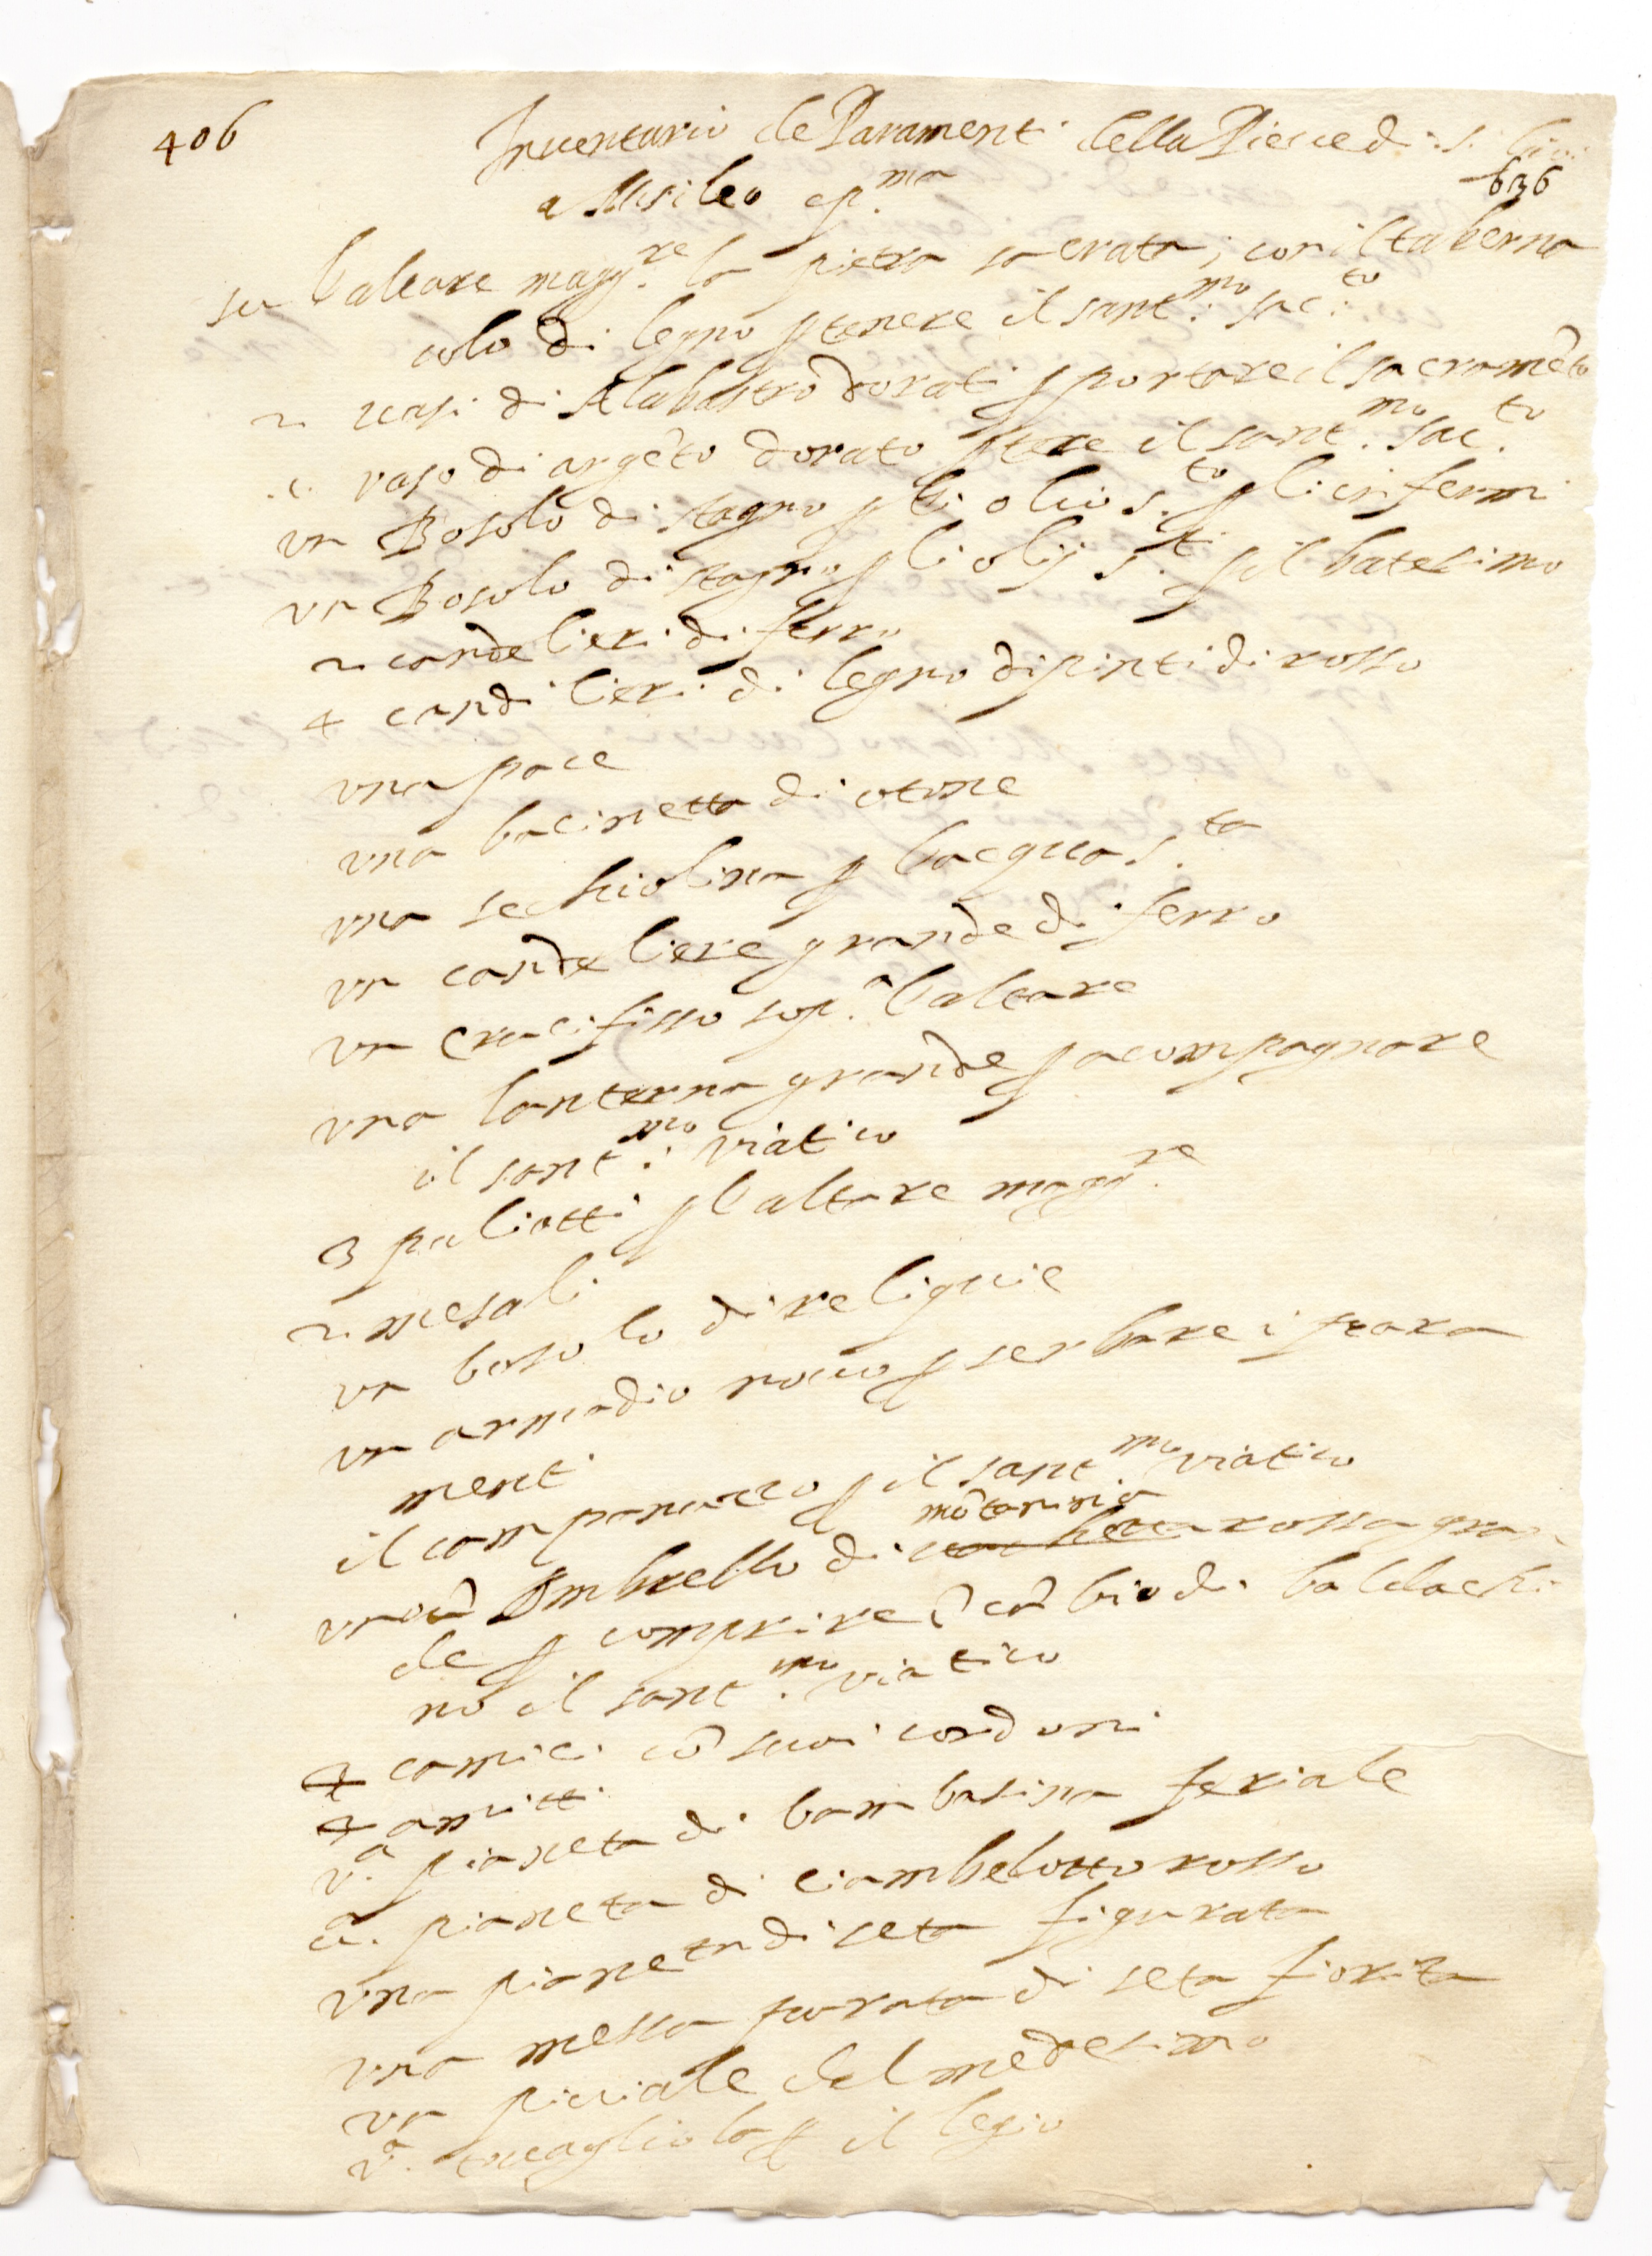 406
Inventario de Paramenti della Pieve di S. Gio:
636
a Misileo ep.ma
su l'altare magg.re la pietra sacrata, con il taberna
colo di legno p tenere il sant.mo sac.to
2 vasi di Alabastro dorati p portare il sacramēto
.i. vaso di argēto dorato p tere il sant.mo sac.to
un Bosolo di stagno p li olio s.to p li infermi
un Bosolo di stagno p li olij s.ti p il batesimo
2 candelieri di ferro
4 candilieri di legno dipinti di rosso
una pace
una bacinetta di otone
una sechiolina p l'acqua s.ta
un candeliere grande di ferro
un crucifisso sop.a l'altare
una lanterna grande p acompagnare
il sant.mo viatico
3 paliotti p l'altare magg.re
2 mesali
un bosolo di reliquie
un armadio novo p serbare i para
menti
il campanaccio p il sant.mo viatico
mōtanina
Ombrello di rossa gran
de p comprire ī cābio di baldachi
no il sant.mo viatico
4 camici cō suoi cordoni
4 amitti
v.a pianeta di bambasina feriale
u.a pianeta di ciambelotto rosso
una pianeta di seta figurata
una messa parata di seta fiorita
un piviale del medesimo
v.a tovagliola p il legio